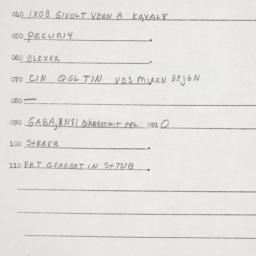 040 IXOB GIVOLT VERN A KQVALY
050 DRCURIY.
060 BLEXER.
070 CIN QGLTIN VOS MIKEN BEJGN
080 —
090 GABA, 091 O
100 STERER.
110 ERT GEARBET IN STUB.